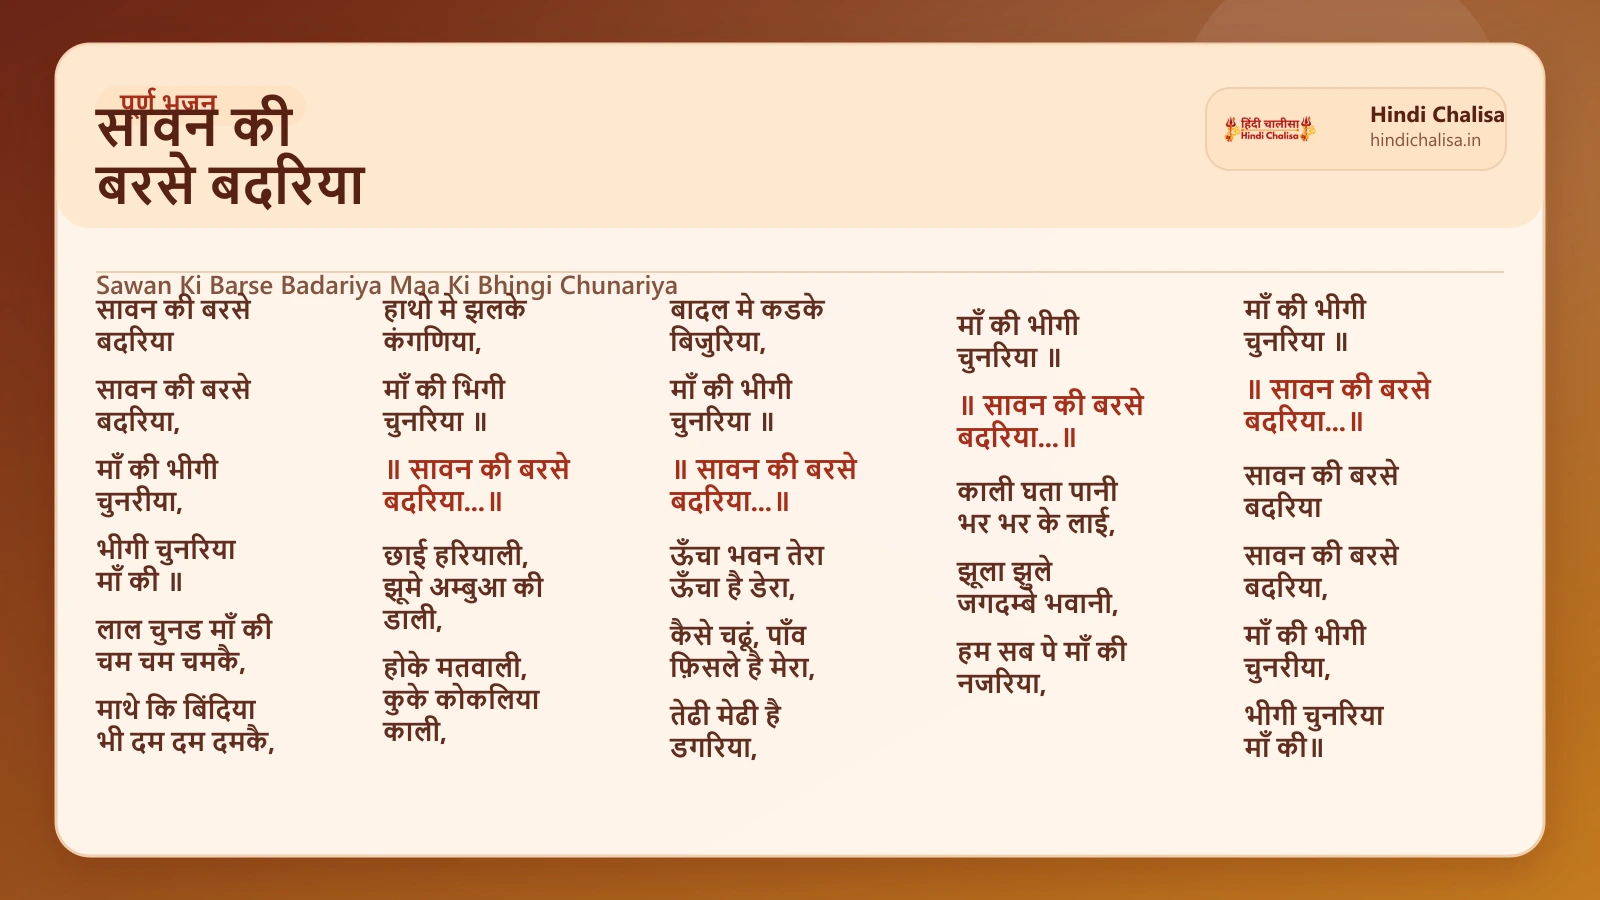 पूर्ण भजन
सावन की
बरसे बदरिया
हिंदी चालीसा
Hindi Chalisa
Hindi Chalisa
hindichalisa.in
Sawan Ki Barse Badariya Maa Ki Bhingi Chunariya
सावन की बरसे
बदरिया
सावन की बरसे
बदरिया,
माँ की भीगी
चुनरीया,
भीगी चुनरिया
माँ की ॥
लाल चुनड माँ की
चम चम चमकै,
माथे कि बिंदिया
भी दम दम दमकै,
हाथो मे झलके
कंगणिया,
माँ की भिगी
चुनरिया ॥
॥ सावन की बरसे
बदरिया...॥
छाई हरियाली,
झूमे अम्बुआ की
डाली,
होके मतवाली,
कुके कोकलिया
काली,
बादल मे कडके
बिजुरिया,
माँ की भीगी
चुनरिया ॥
॥ सावन की बरसे
बदरिया...॥
ऊँचा भवन तेरा
ऊँचा है डेरा,
कैसे चढूं, पाँव
फ़िसले है मेरा,
तेढी मेढी है
डगरिया,
माँ की भीगी
चुनरिया ॥
॥ सावन की बरसे
बदरिया...॥
काली घता पानी
भर भर के लाई,
झूला झुले
जगदम्बे भवानी,
हम सब पे माँ की
नजरिया,
माँ की भीगी
चुनरिया ॥
॥ सावन की बरसे
बदरिया...॥
सावन की बरसे
बदरिया
सावन की बरसे
बदरिया,
माँ की भीगी
चुनरीया,
भीगी चुनरिया
माँ की॥